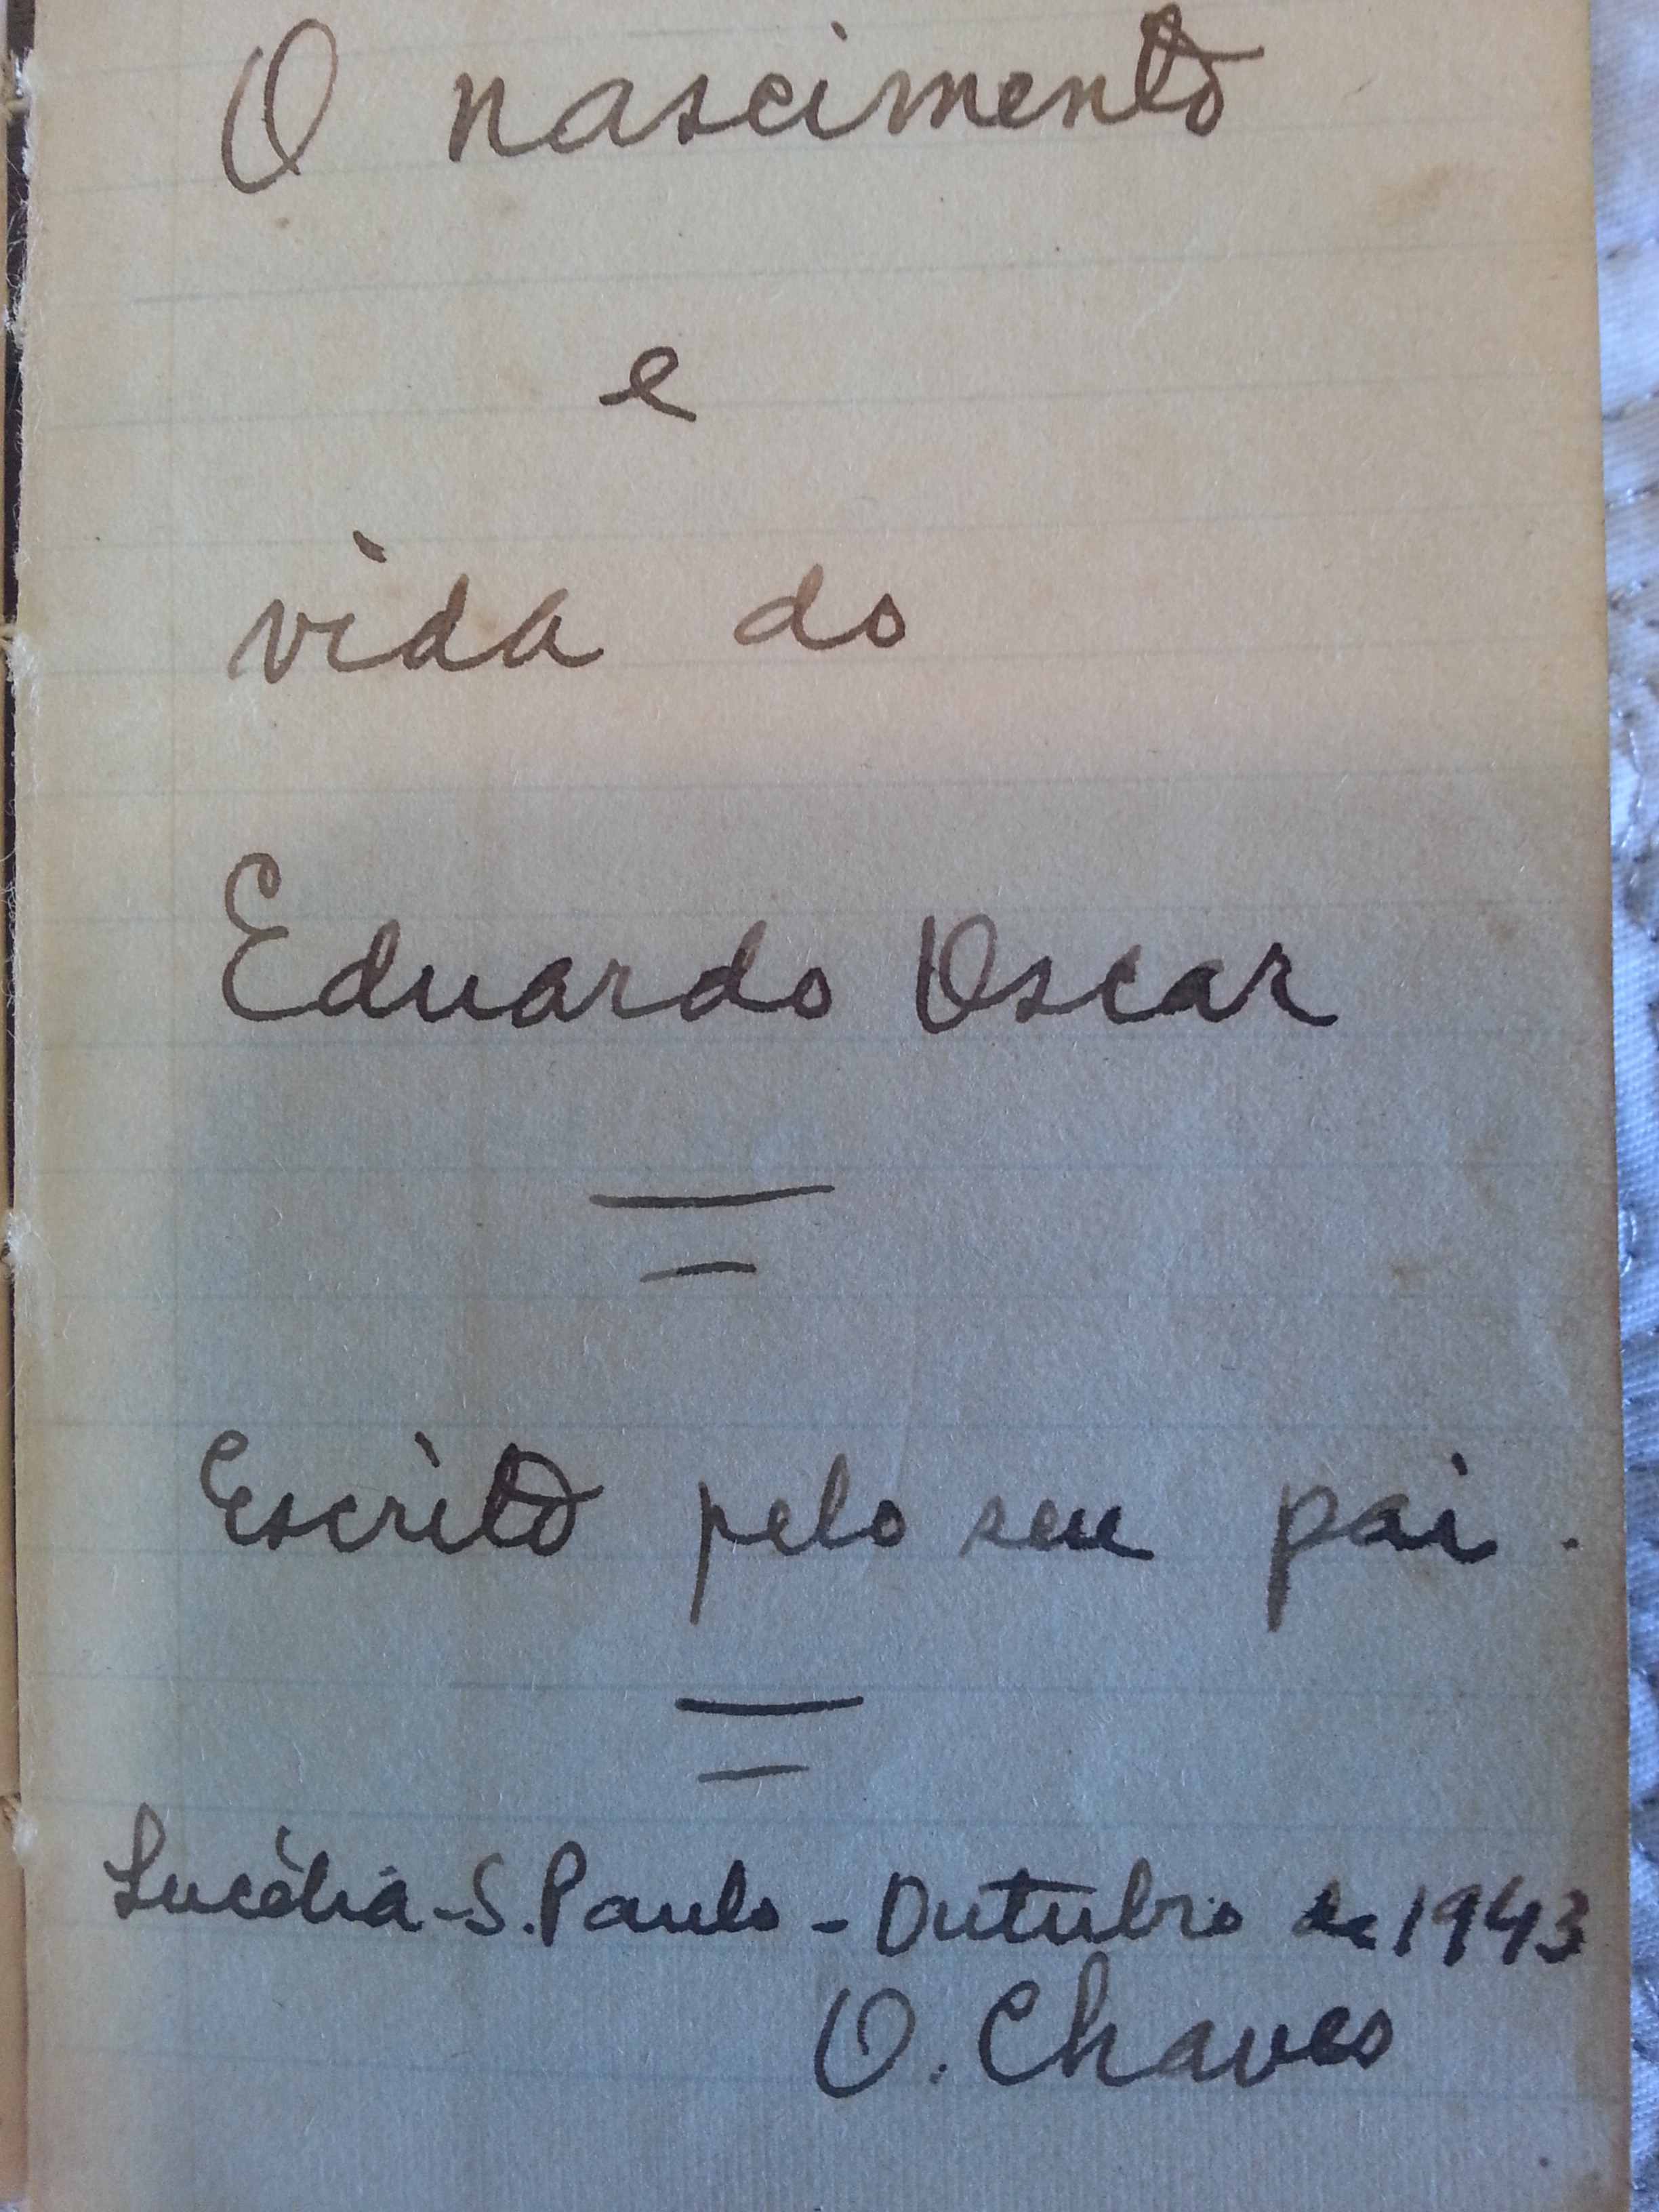 O nascimento
e
vida do
Eduardo Oscar
Escrito pelo seu pai.
Lucélia-S.Paulo-Outubro de 1943
O. Chaves